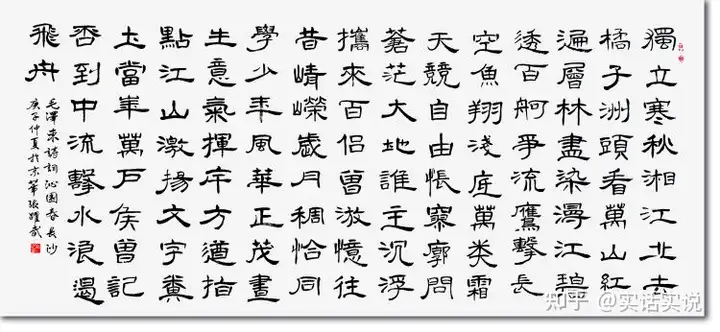 獨立寒秋湘江北去
橘子洲頭看萬山紅
遍層林盡染漫江碧
透百舸爭流鷹擊長
空魚翔淺底萬類霜
天競自由悵寥廓問
蒼茫大地誰主沉浮
攜來百侶曾游憶往
昔崢嶸歲月稠恰同
學少年風華正茂書
生意氣揮斥方遒指
點江山激揚文字糞
土當年萬戶侯曾記
否到中流擊水浪遏
飛舟
毛澤東詩詞沁園春長沙
庚子仲夏於京華張躍武
知乎 @实话实说